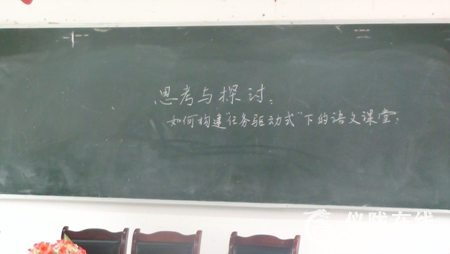 思考与探讨：
如何构建“任务驱动式”下的语文课堂？
在线